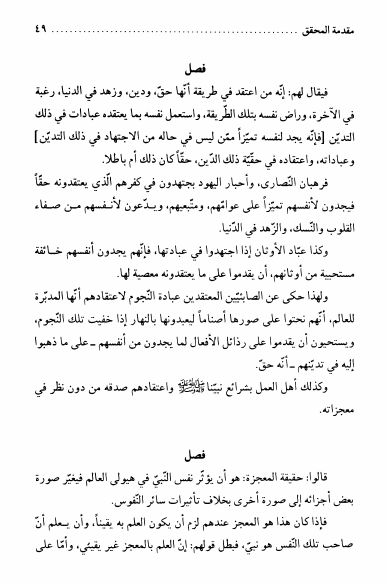 مقدمة المحقق ........................................................ ٤٩
فصل
فيقال لهم: إنّه من اعتقد في طريقة أنّها حقّ، ودين، وزهد في الدنيا، رغبة
في الآخرة، وراض نفسه بتلك الطّريقة، واستعمل نفسه بما يعتقده عبادات في ذلك
التديّن [فإنّه يجد لنفسه تميّزاً ممّن ليس في حاله من الاجتهاد في ذلك التديّن]
وعباداته، واعتقاده في حقّيّة ذلك الدّين، حقّاً كان ذلك أم باطلا.
فرهبان النّصارى، وأحبار اليهود يجتهدون في كفرهم الّذي يعتقدونه حقّاً
فيجدون لأنفسهم تميّزاً على عوامّهم، ومتّبعيهم، ويدّعون لأنفسهم من صفاء
القلوب والنّسك، والزّهد في الدّنيا.
وكذا عبّاد الأوثان إذا اجتهدوا في عبادتها، فإنّهم يجدون أنفسهم خائفة
مستحيية من أوثانهم، أن يقدموا على ما يعتقدونه معصية لها.
ولهذا حكى عن الصابئيّين المعتقدين عبادة النّجوم لاعتقادهم أنّها المدبّرة
للعالم، أنّهم نحتوا على صورها أصناماً ليعبدونها بالنهار إذا خفيت تلك النّجوم،
ويستحيون أن يقدموا على رذائل الأفعال لما يجدون من أنفسهم ـ على ما ذهبوا
إليه في تديّنهم ـ أنّه حقّ.
وكذلك أهل العمل بشرائع نبيّنا ﷺ واعتقادهم صدقه من دون نظر في
معجزاته.
فصل
قالوا: حقيقة المعجزة: هو أن يؤثّر نفس النّبيّ في هيولى العالم فيغيّر صورة
بعض أجزائه إلى صورة أخرى بخلاف تأثيرات سائر النّفوس.
فإذا كان هذا هو المعجز عندهم لزم أن يكون العلم به يقيناً، وأن يعلم أنّ
صاحب تلك النّفس هو نبيّ، فبطل قولهم: إنّ العلم بالمعجز غير يقيني، وأمّا على